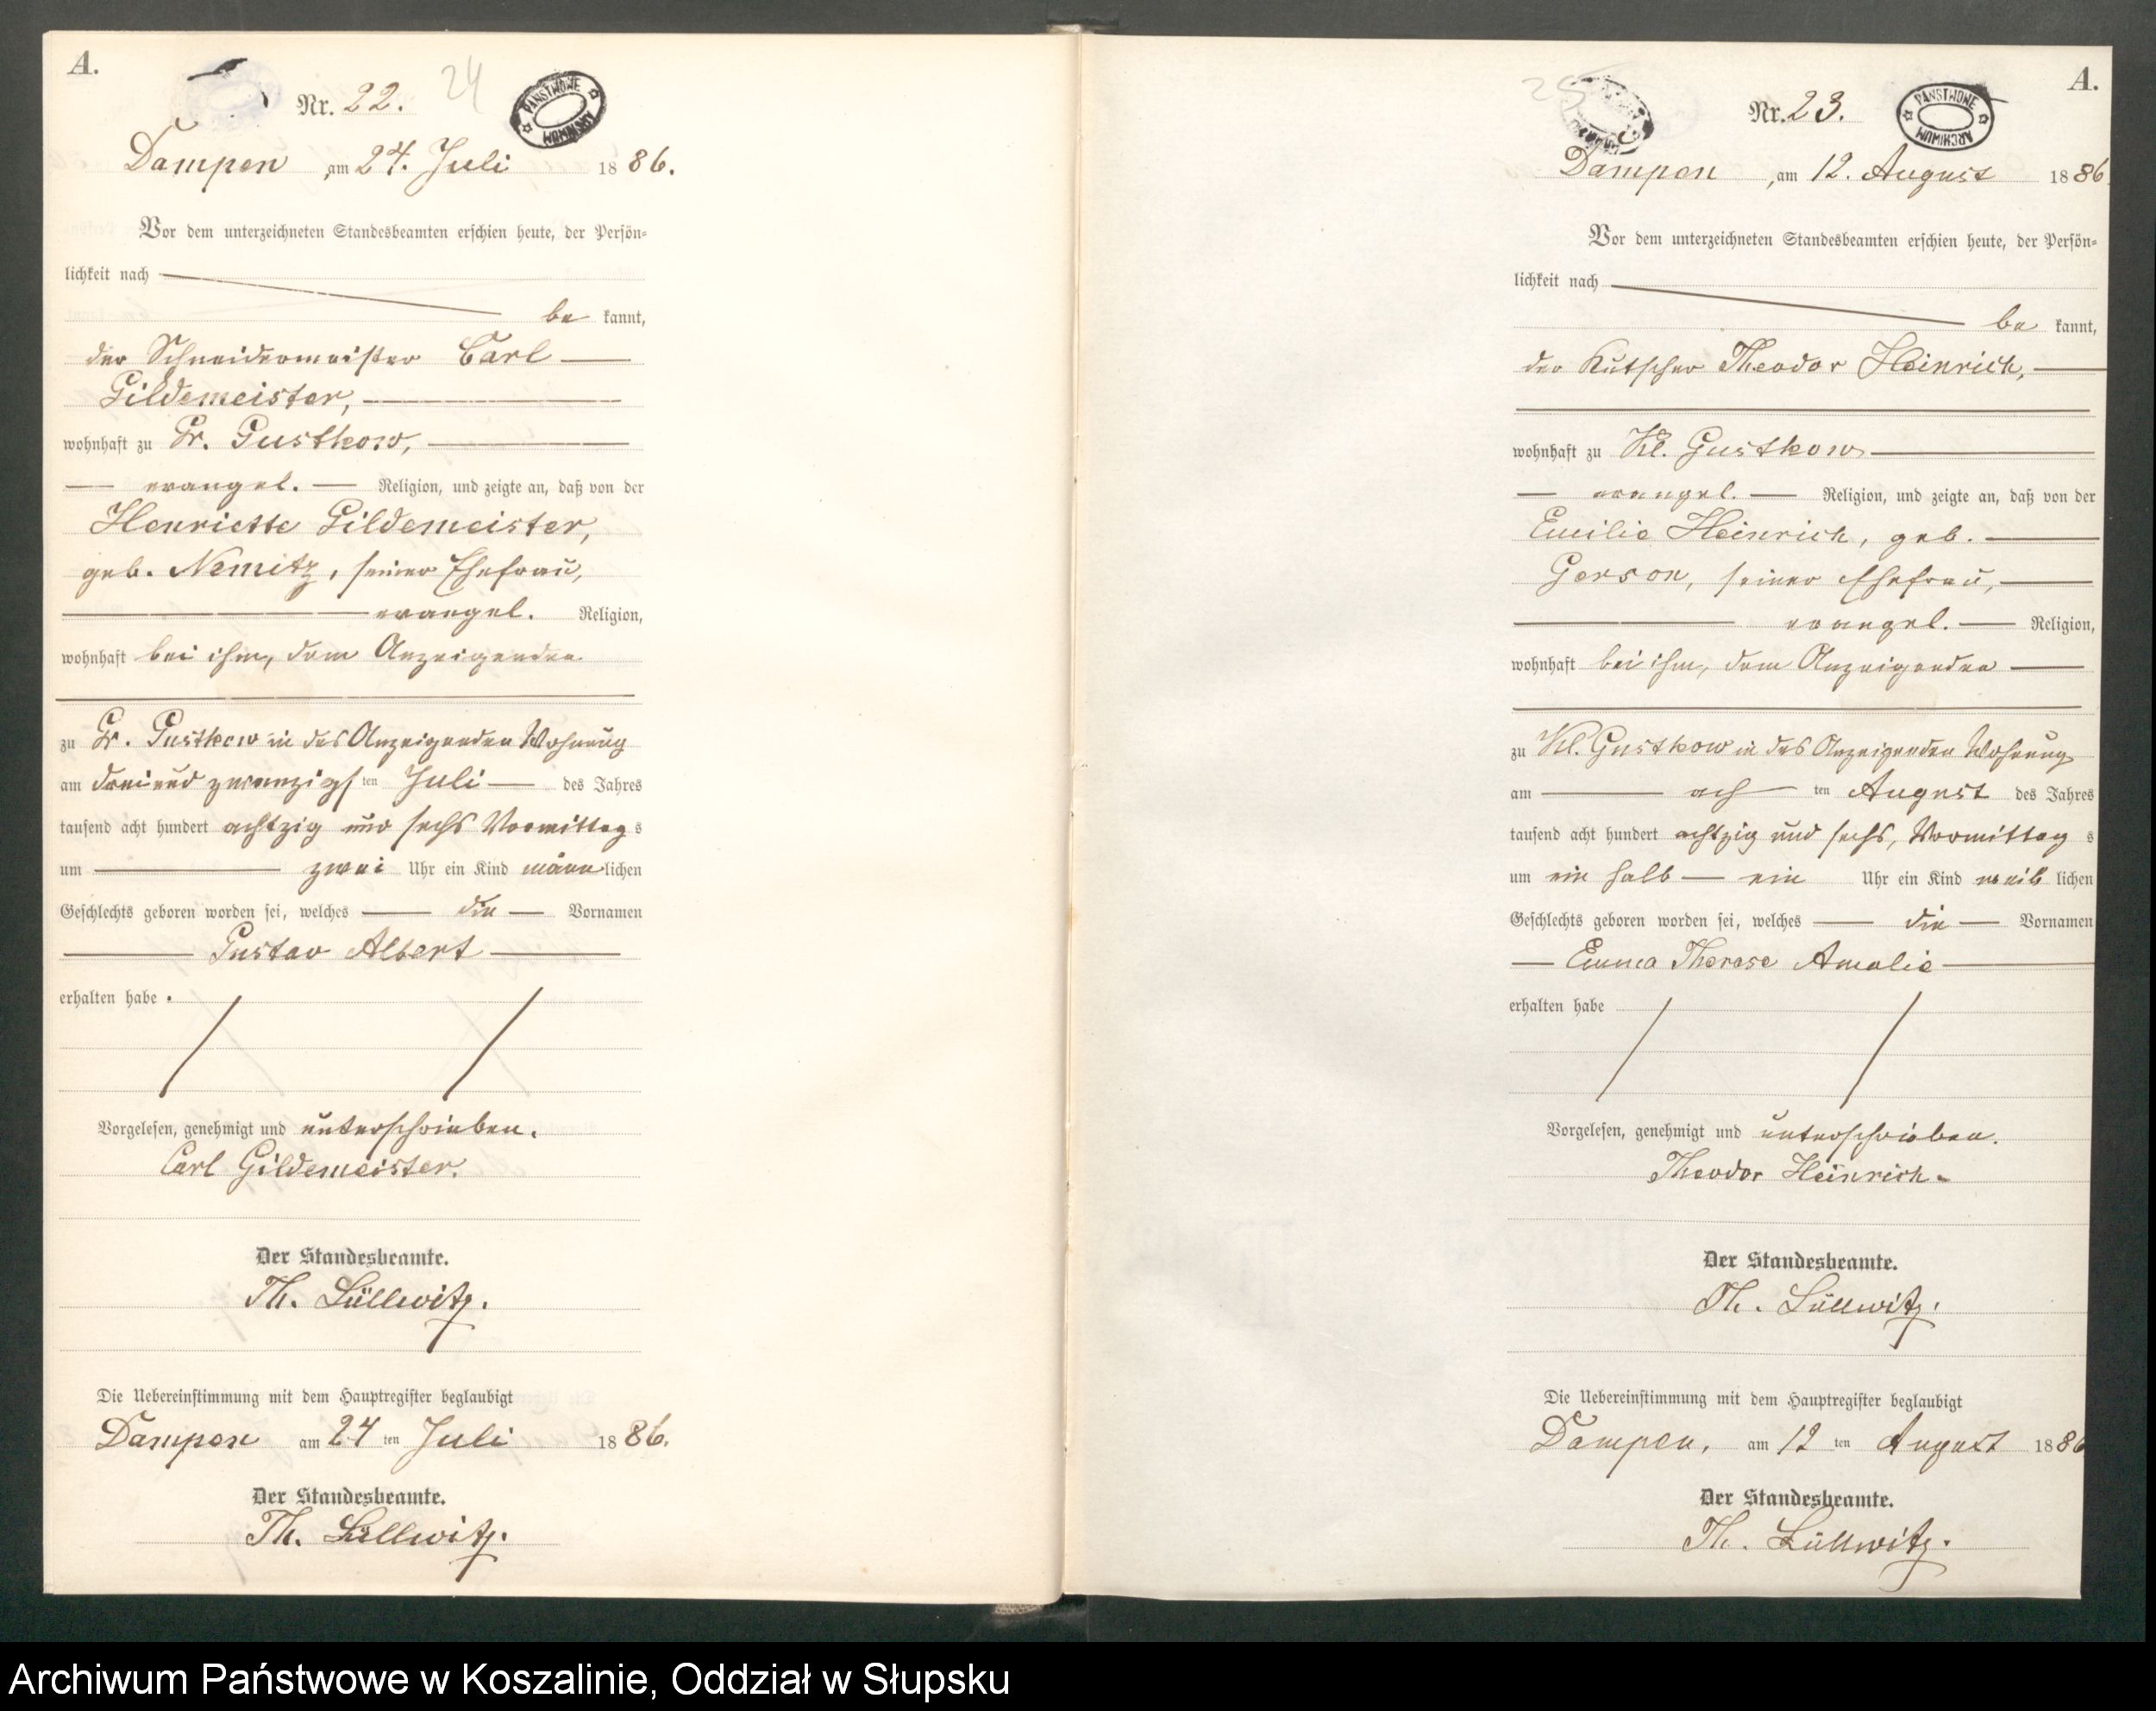 A.
24
Nr. 22.
PAŃSTWOWE ARCHIWUM
Dampen, am 24. Juli 1886.
Vor dem unterzeichneten Standesbeamten erschien heute, der Persön-
lichkeit nach
be kannt,
der Schneidermeister Carl
Gildemeister,
wohnhaft zu Gr. Gustkow,
evangel. Religion, und zeigte an, daß von der
Henriette Gildemeister,
geb. Nemitz, seiner Ehefrau,
evangel. Religion,
wohnhaft bei ihm, dem Anzeigenden
zu Gr. Gustkow in des Anzeigenden Wohnung
am dreiund zwanzigs ten Juli des Jahres
tausend acht hundert achtzig und sechs Vormittag s
um zwei Uhr ein Kind männ lichen
Geschlechts geboren worden sei, welches die Vornamen
Gustav Albert
erhalten habe.
Vorgelesen, genehmigt und unterschrieben.
Carl Gildemeister.
Der Standesbeamte.
Th. Lüllwitz.
Die Uebereinstimmung mit dem Hauptregister beglaubigt
Dampen am 24 ten Juli 1886.
Der Standesbeamte.
Th. Lüllwitz.
A.
25
Nr. 23.
PAŃSTWOWE ARCHIWUM
Dampen, am 12. August 1886
Vor dem unterzeichneten Standesbeamten erschien heute, der Persön-
lichkeit nach
be kannt,
der Kutscher Theodor Heinrich,
wohnhaft zu Kl. Gustkow
evangel. Religion, und zeigte an, daß von der
Emilie Heinrich, geb.
Gerson, seiner Ehefrau,
evangel. Religion,
wohnhaft bei ihm, dem Anzeigenden
zu Kl. Gustkow in des Anzeigenden Wohnung
am ach ten August des Jahres
tausend acht hundert achtzig und sechs, Vormittag s
um ein halb ein Uhr ein Kind weib lichen
Geschlechts geboren worden sei, welches die Vornamen
Emma Therese Amalie
erhalten habe
Vorgelesen, genehmigt und unterschrieben.
Theodor Heinrich.
Der Standesbeamte.
Th. Lüllwitz.
Die Uebereinstimmung mit dem Hauptregister beglaubigt
Dampen, am 12 ten August 1886
Der Standesbeamte.
Th. Lüllwitz.
Archiwum Państwowe w Koszalinie, Oddział w Słupsku